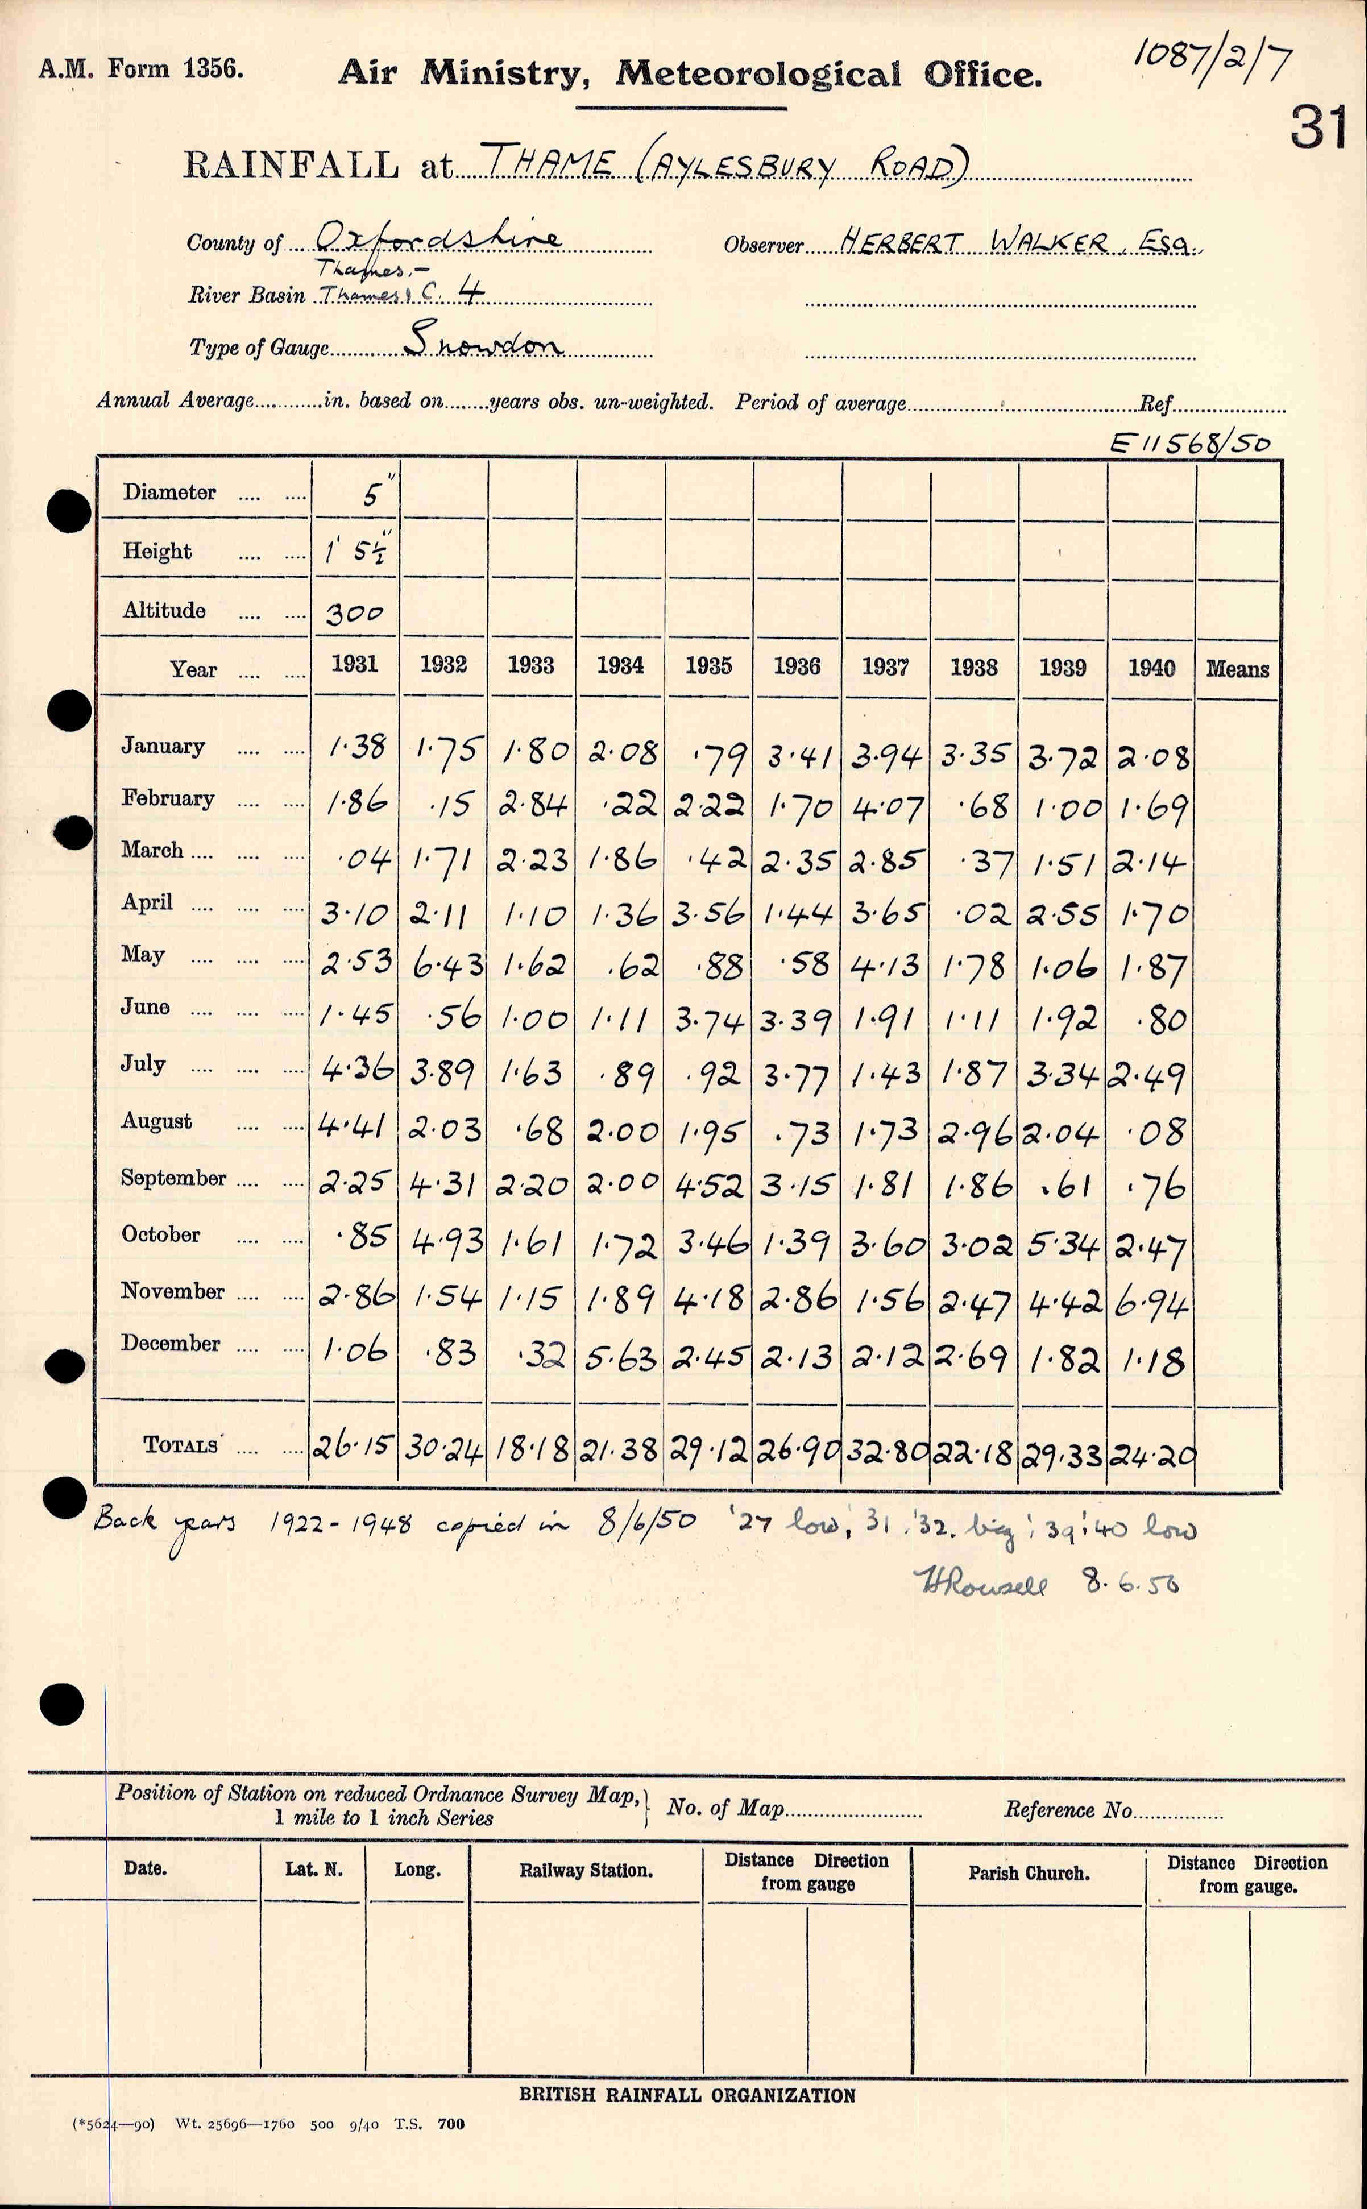 A.M. Form 1356.
Air Ministry, Meteorological Office.
1087/2/7
31
RAINFALL at THAME (AYLESBURY ROAD)
County of Oxfordshire Observer HERBERT WALKER, Esq.
Thames,-
River Basin Thames C. 4
Type of Gauge Snowdon
Annual Average............in. based on........years obs. un-weighted. Period of average........................Ref....................
E11568/50
Diameter .... .... 5"
Height .... .... 1' 5½"
Altitude .... .... 300
Year .... .... 1931 1932 1933 1934 1935 1936 1937 1938 1939 1940 Means
January .... .... 1·38 1·75 1·80 2·08 ·79 3·41 3·94 3·35 3·72 2·08
February .... .... 1·86 ·15 2·84 ·22 2·22 1·70 4·07 ·68 1·00 1·69
March .... .... .... ·04 1·71 2·23 1·86 ·42 2·35 2·85 ·37 1·51 2·14
April .... .... .... 3·10 2·11 1·10 1·36 3·56 1·44 3·65 ·02 2·55 1·70
May .... .... .... 2·53 6·43 1·62 ·62 ·88 ·58 4·13 1·78 1·06 1·87
June .... .... .... 1·45 ·56 1·00 1·11 3·74 3·39 1·91 1·11 1·92 ·80
July .... .... .... 4·36 3·89 1·63 ·89 ·92 3·77 1·43 1·87 3·34 2·49
August .... .... 4·41 2·03 ·68 2·00 1·95 ·73 1·73 2·96 2·04 ·08
September .... .... 2·25 4·31 2·20 2·00 4·52 3·15 1·81 1·86 ·61 ·76
October .... .... ·85 4·93 1·61 1·72 3·46 1·39 3·60 3·02 5·34 2·47
November .... .... 2·86 1·54 1·15 1·89 4·18 2·86 1·56 2·47 4·42 6·94
December .... .... 1·06 ·83 ·32 5·63 2·45 2·13 2·12 2·69 1·82 1·18
TOTALS .... .... 26·15 30·24 18·18 21·38 29·12 26·90 32·80 22·18 29·33 24·20
Back years 1922-1948 copied in 8/6/50 '27 low; 31, '32. big; 39; 40 low
HRowsell 8.6.50
Position of Station on reduced Ordnance Survey Map,
1 mile to 1 inch Series
No. of Map........................ Reference No................
Date. Lat. N. Long. Railway Station. Distance Direction from gauge Parish Church. Distance Direction from gauge.
BRITISH RAINFALL ORGANIZATION
(*5624—90) Wt. 25696—1760 500 9/40 T.S. 700